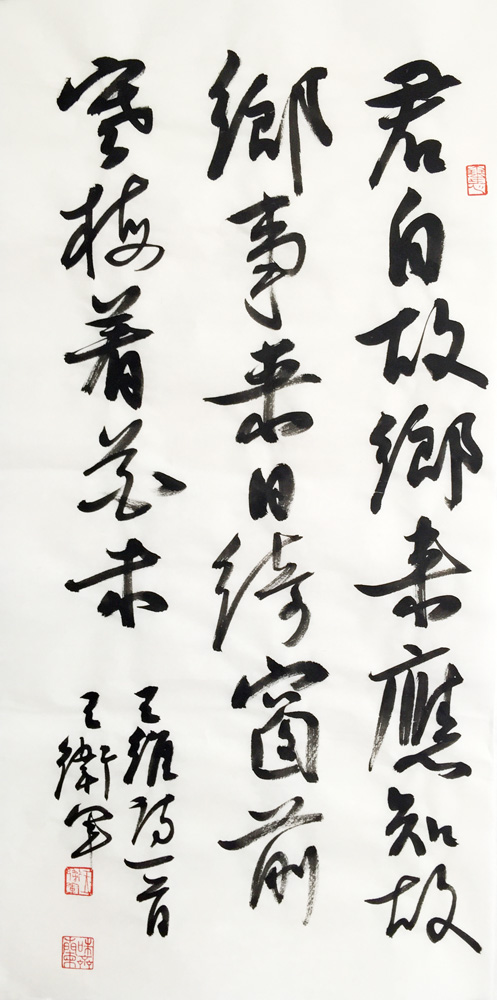 君自故鄉来應知故
鄉事来日綺窗前
寒梅着花未
王維詩一首
王衛軍